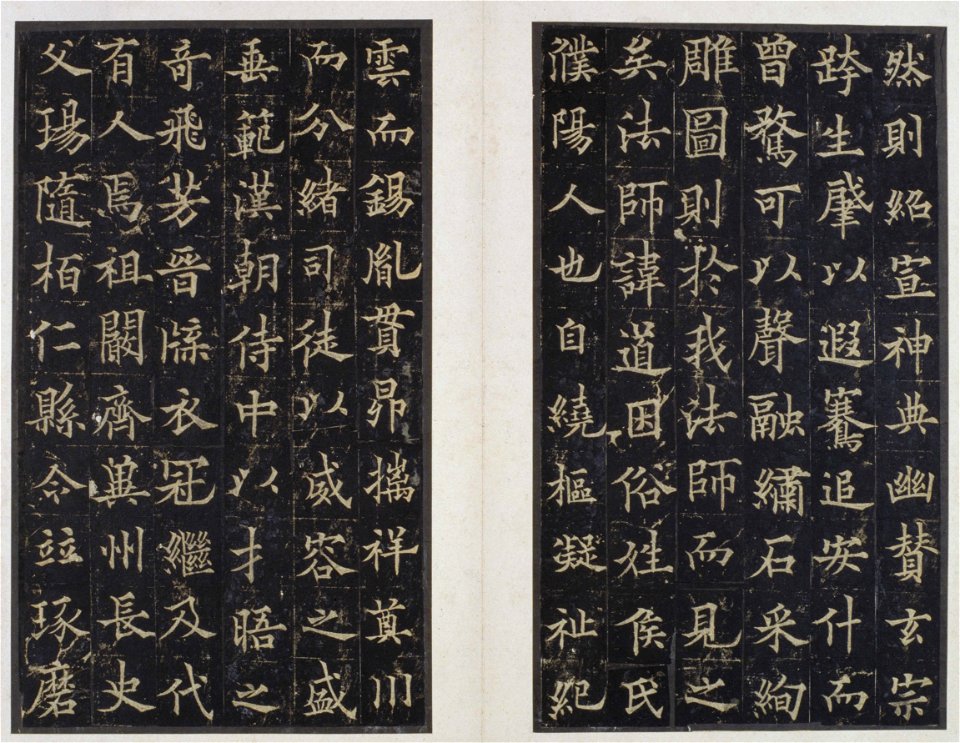 然則紹宣神典幽贊玄宗
跨生肇以遐騫追安什而
曾騖可以聲融繡石采絢
雕圖則於我法師而見之
矣法師諱道因俗姓侯氏
濮陽人也自繞樞凝祉紀
雲而錫胤貫昴摛祥奠川
而分緒司徒以威容之盛
垂範漢朝侍中以才晤之
奇飛芳晉牒衣冠繼及代
有人焉祖闞齊冀州長史
父瑒隨柏仁縣令竝琢磨